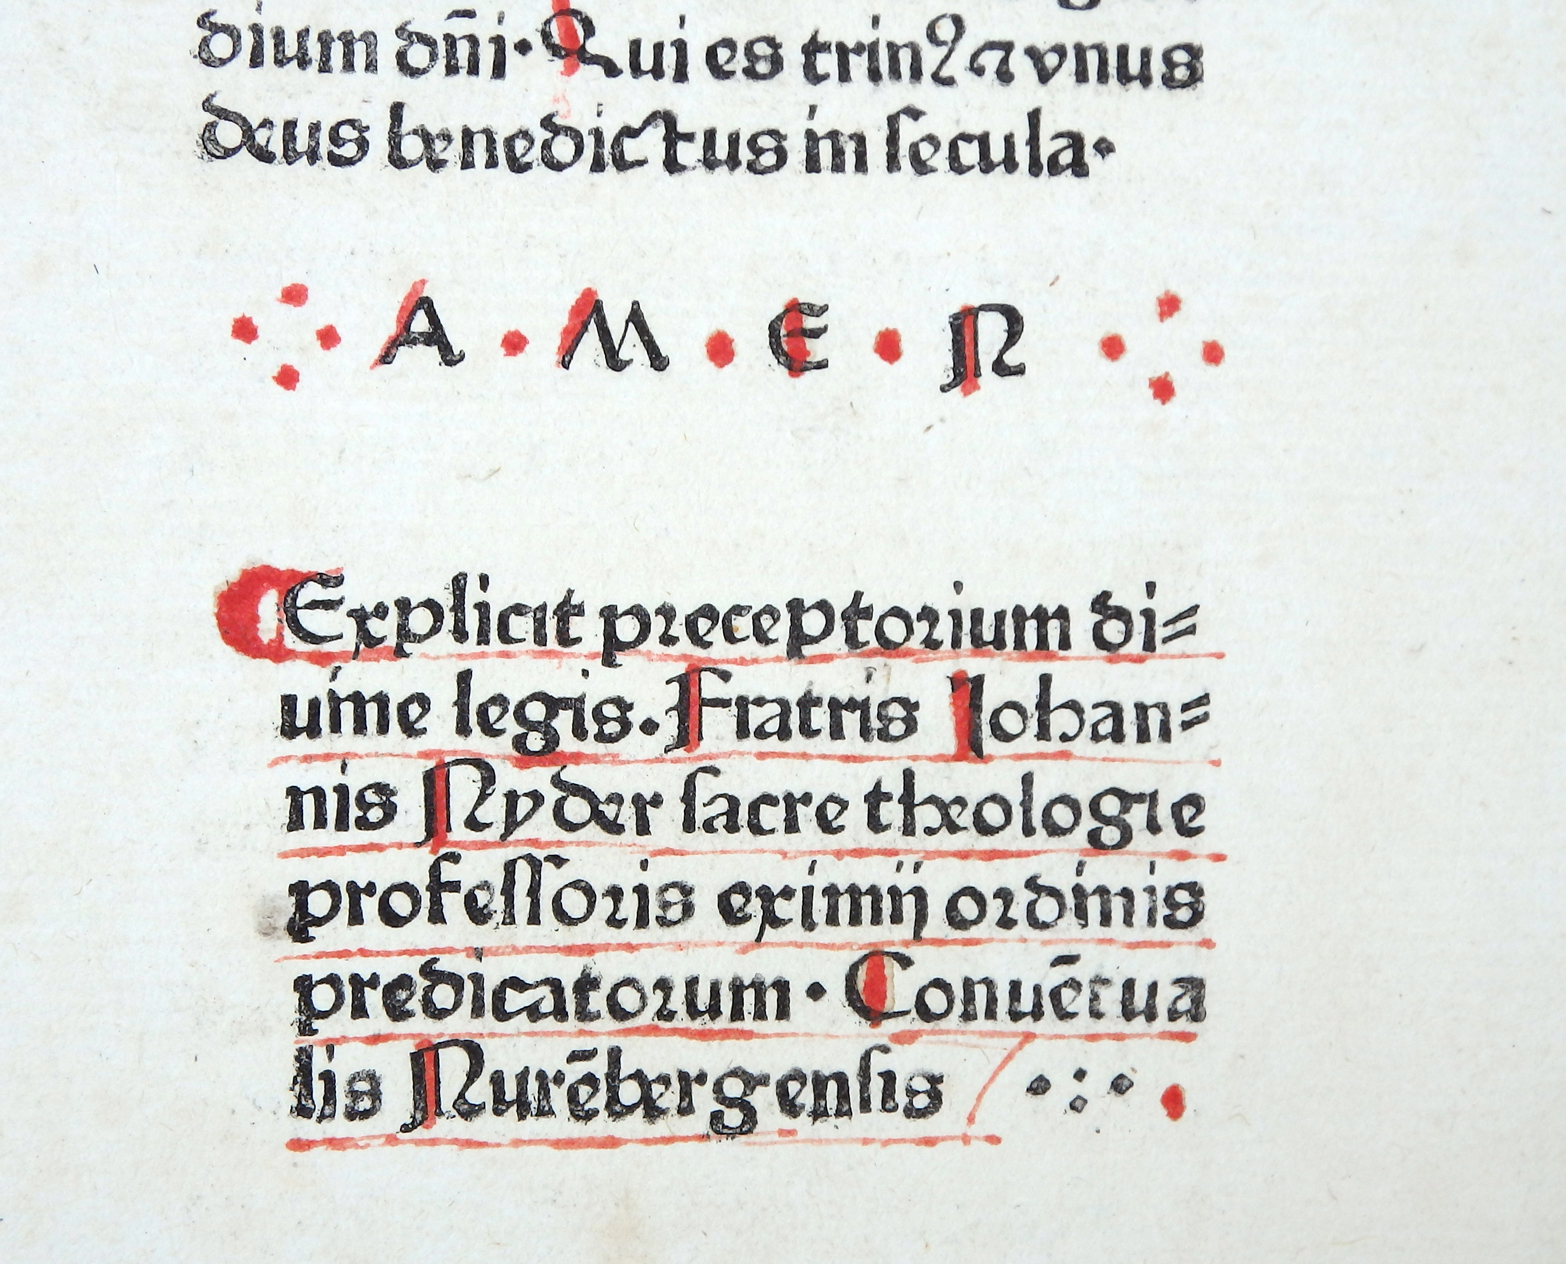 dium dñi·Qui es trinꝰ ⁊ vnus
deus benedictus in ſecula·
A · M · E · N
Explicit preceptorium di⸗
uine legis. Fratris Johan⸗
nis Nyder ſacre theologie
profeſſoris eximij ordinis
predicatorum · Conuētua
lis Nurēbergenſis ·:·